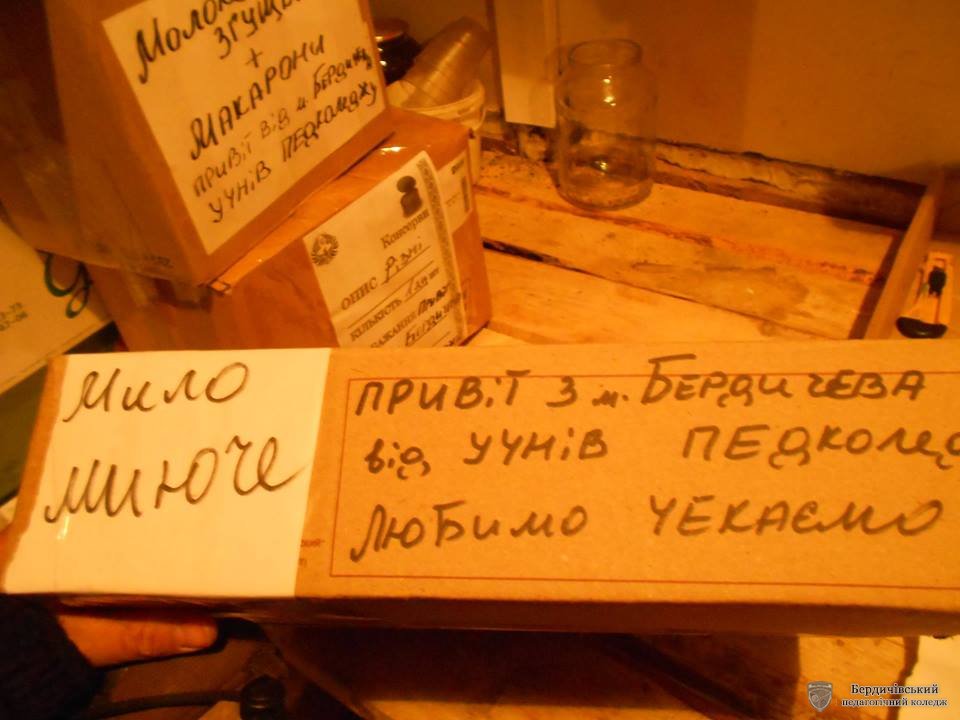 Молоко
згущ
+
МАКАРОНИ
ПРИВІТ ВІД м. БЕРДИЧЕВ
УЧНІВ ПЕДКОЛЕДЖУ
Консерви
ОПИС Різні
КІЛЬКІСТЬ
Мило
миюче
ПРИВІТ З м. БЕРДИЧЕВА
від УЧНІВ ПЕДКОЛЕД
ЛЮБИМО ЧЕКАЄМО
Бердичівський
педагогічний коледж